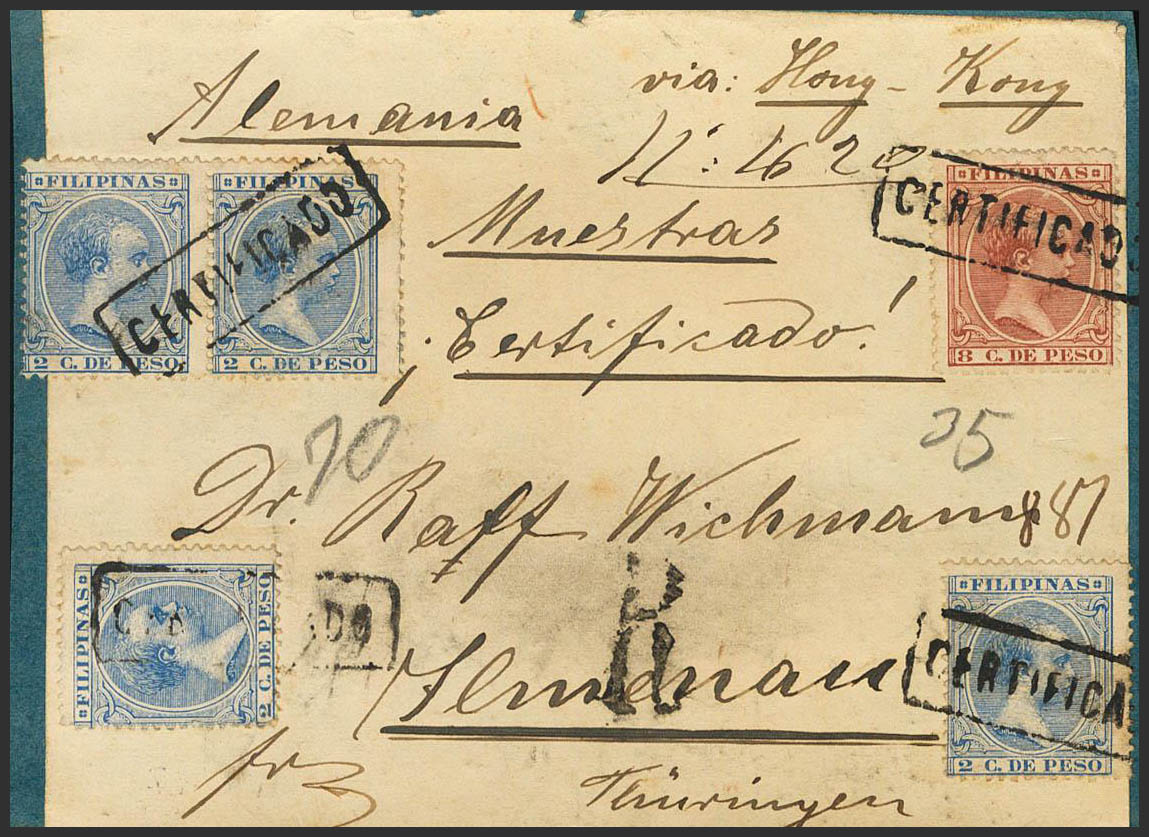 Alemania
via: Hong-Kong
Muestras
Certificado!
FILIPINAS
2 C. DE PESO
FILIPINAS
2 C. DE PESO
CERTIFICADO
FILIPINAS
8 C. DE PESO
CERTIFICADO
70
35
Dr. Raff Wichmann
887
FILIPINAS
2 C. DE PESO
R
Ilmenau
FILIPINAS
2 C. DE PESO
CERTIFICA
Thüringen